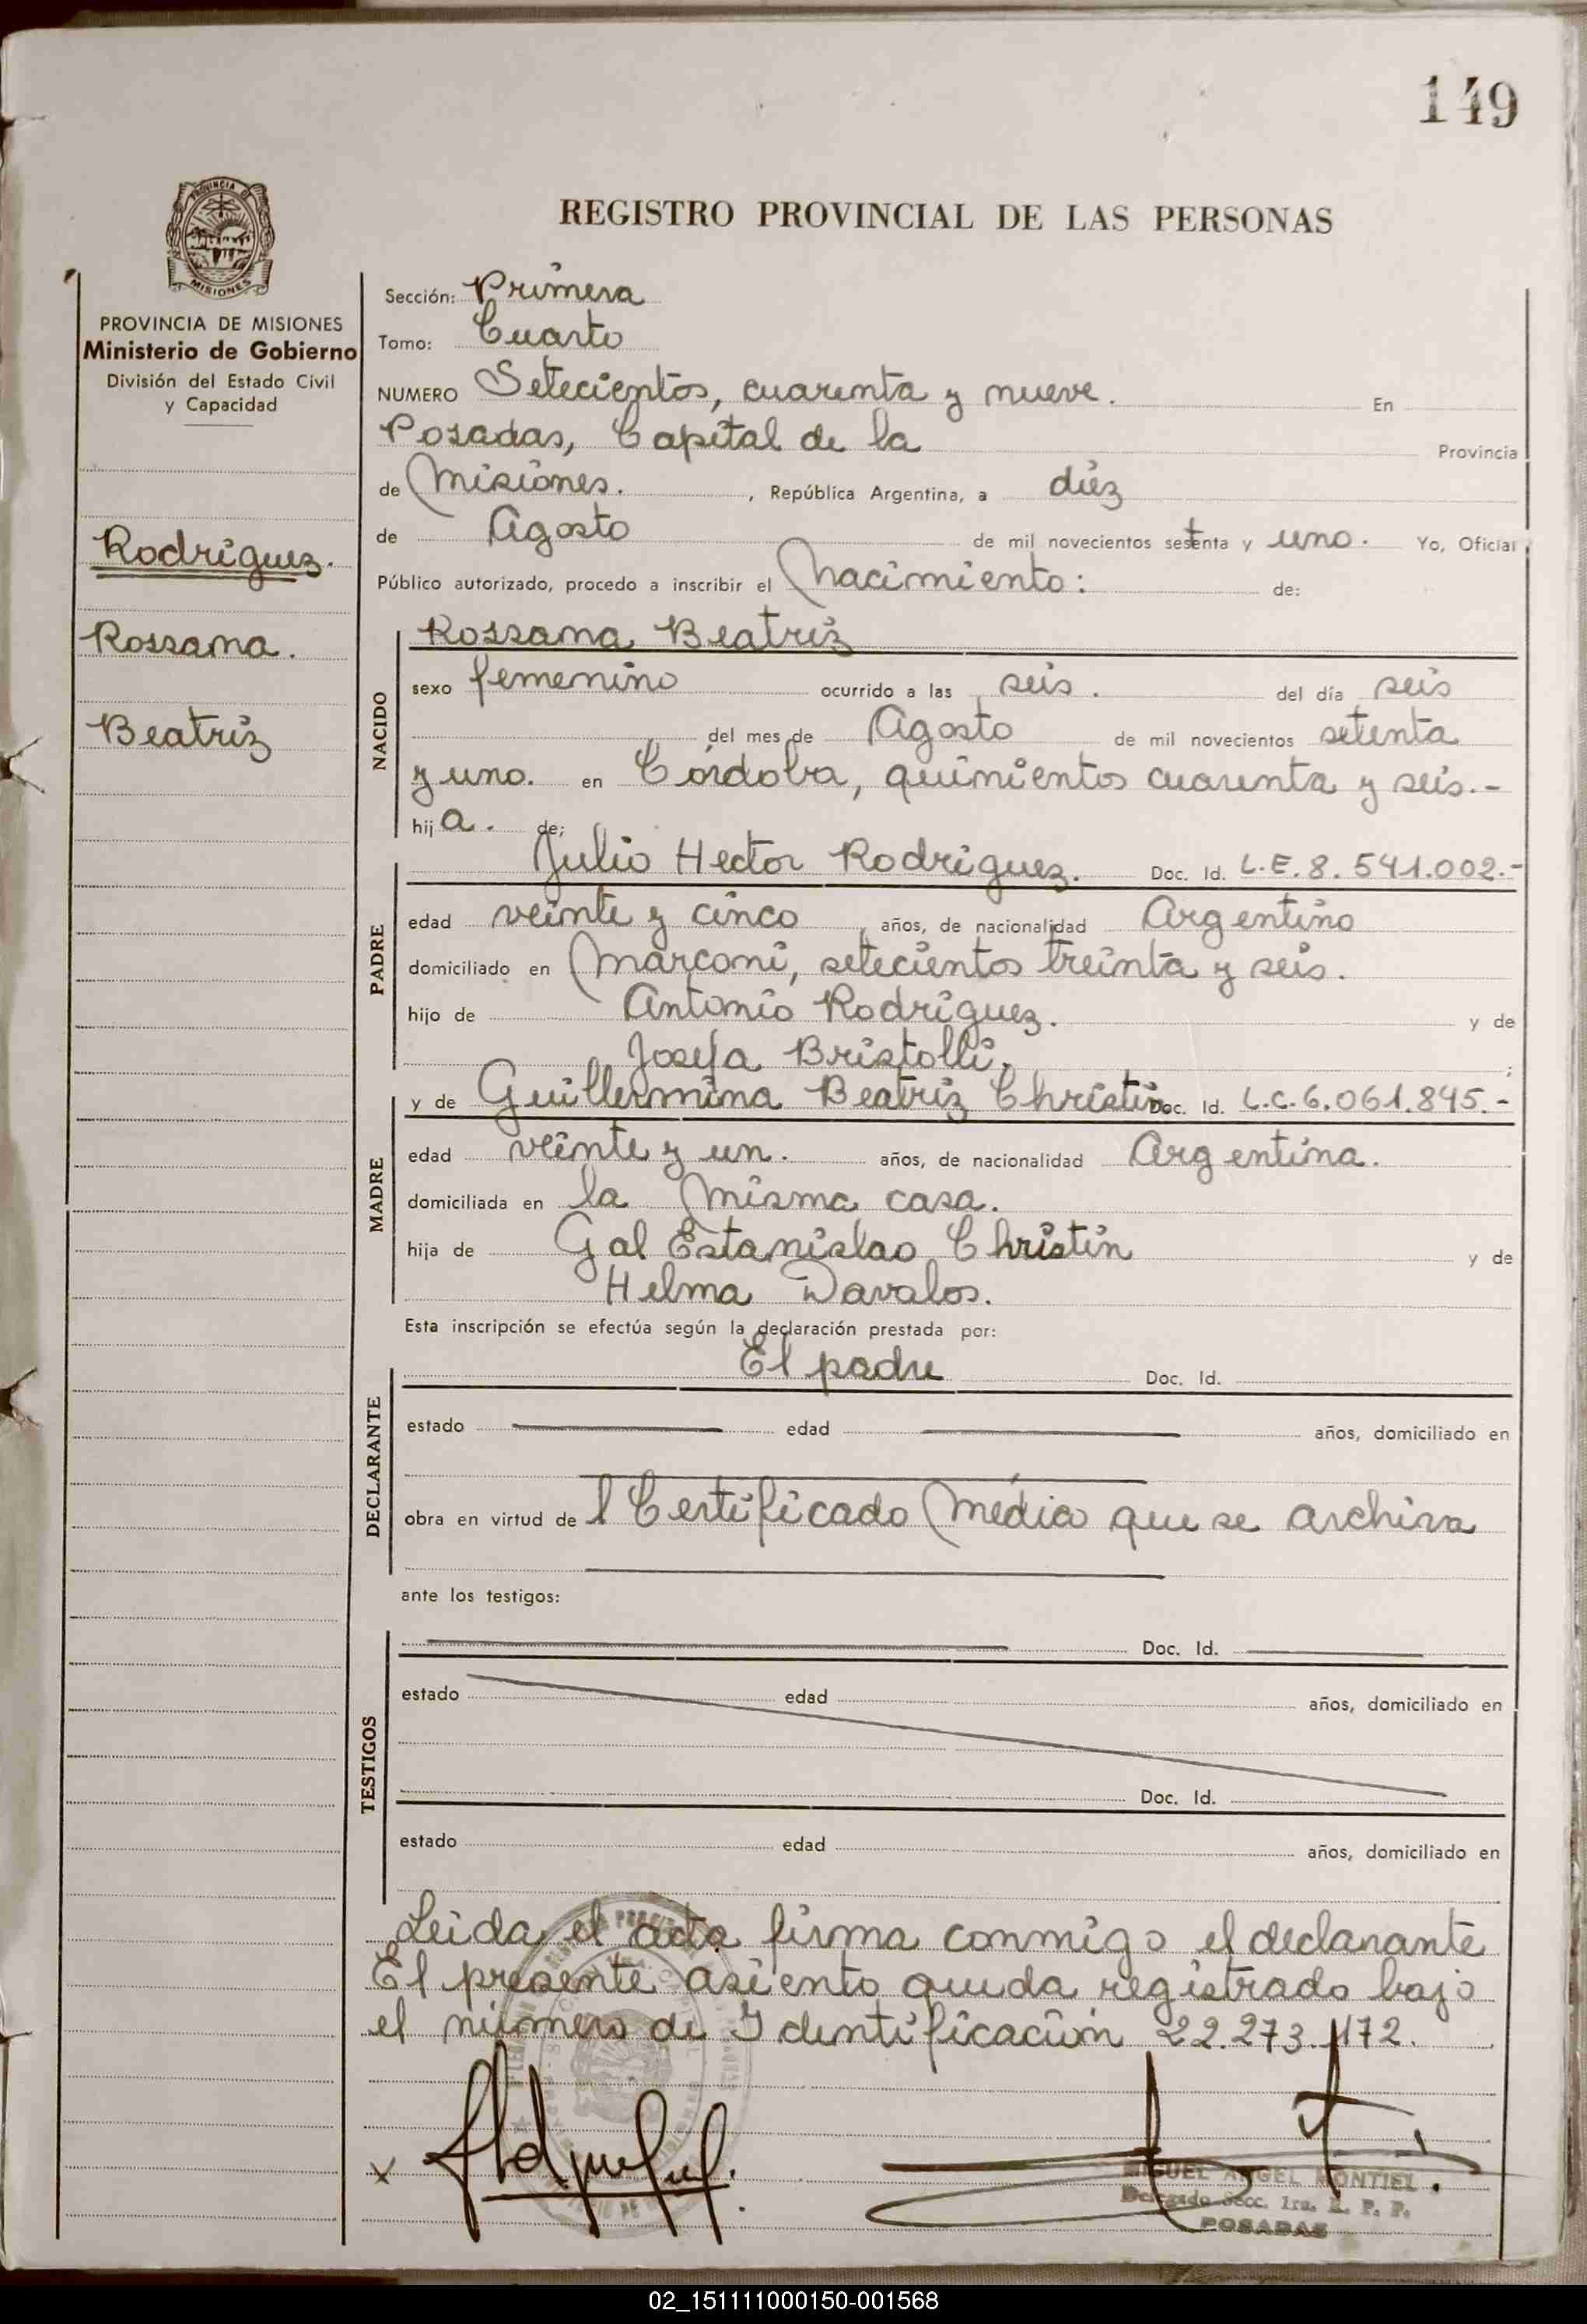 149
PROVINCIA DE
MISIONES
REGISTRO PROVINCIAL DE LAS PERSONAS
PROVINCIA DE MISIONES
Ministerio de Gobierno
División del Estado Civil
y Capacidad
Rodríguez.
Rossana.
Beatriz
Sección: Primera
Tomo: Cuarto
NUMERO Setecientos, cuarenta y nueve. En
Posadas, Capital de la Provincia
de Misiones. , República Argentina, a diez
de Agosto de mil novecientos setenta y uno. Yo, Oficial
Público autorizado, procedo a inscribir el Nacimiento: de:
NACIDO
Rossana Beatriz
sexo femenino ocurrido a las seis. del día seis
del mes de Agosto de mil novecientos setenta
y uno. en Córdoba, quinientos cuarenta y seis.-
hija. de:
PADRE
Julio Hector Rodríguez. Doc. Id. L.E. 8.541.002.-
edad veinte y cinco años, de nacionalidad Argentino
domiciliado en Marconi, setecientos treinta y seis.
hijo de Antonio Rodríguez. y de
Josefa Bristolli. ;
MADRE
y de Guillermina Beatriz Christin Doc. Id. L.C. 6.061.845.-
edad veinte y un. años, de nacionalidad Argentina.
domiciliada en la misma casa.
hija de Gal Estanislao Christin y de
Helma Davalos.
Esta inscripción se efectúa según la declaración prestada por:
DECLARANTE
El padre Doc. Id.
estado edad años, domiciliado en
obra en virtud de l Certificado Médico que se archiva
ante los testigos:
TESTIGOS
Doc. Id.
estado edad años, domiciliado en
Doc. Id.
estado edad años, domiciliado en
Leida el acta firma conmigo el declarante
El presente asiento queda registrado bajo
el número de Identificación 22.273.172.
x
MIGUEL ANGEL MONTIEL
Delegado Secc. 1ra. R. P. P.
POSADAS
02_151111000150-001568